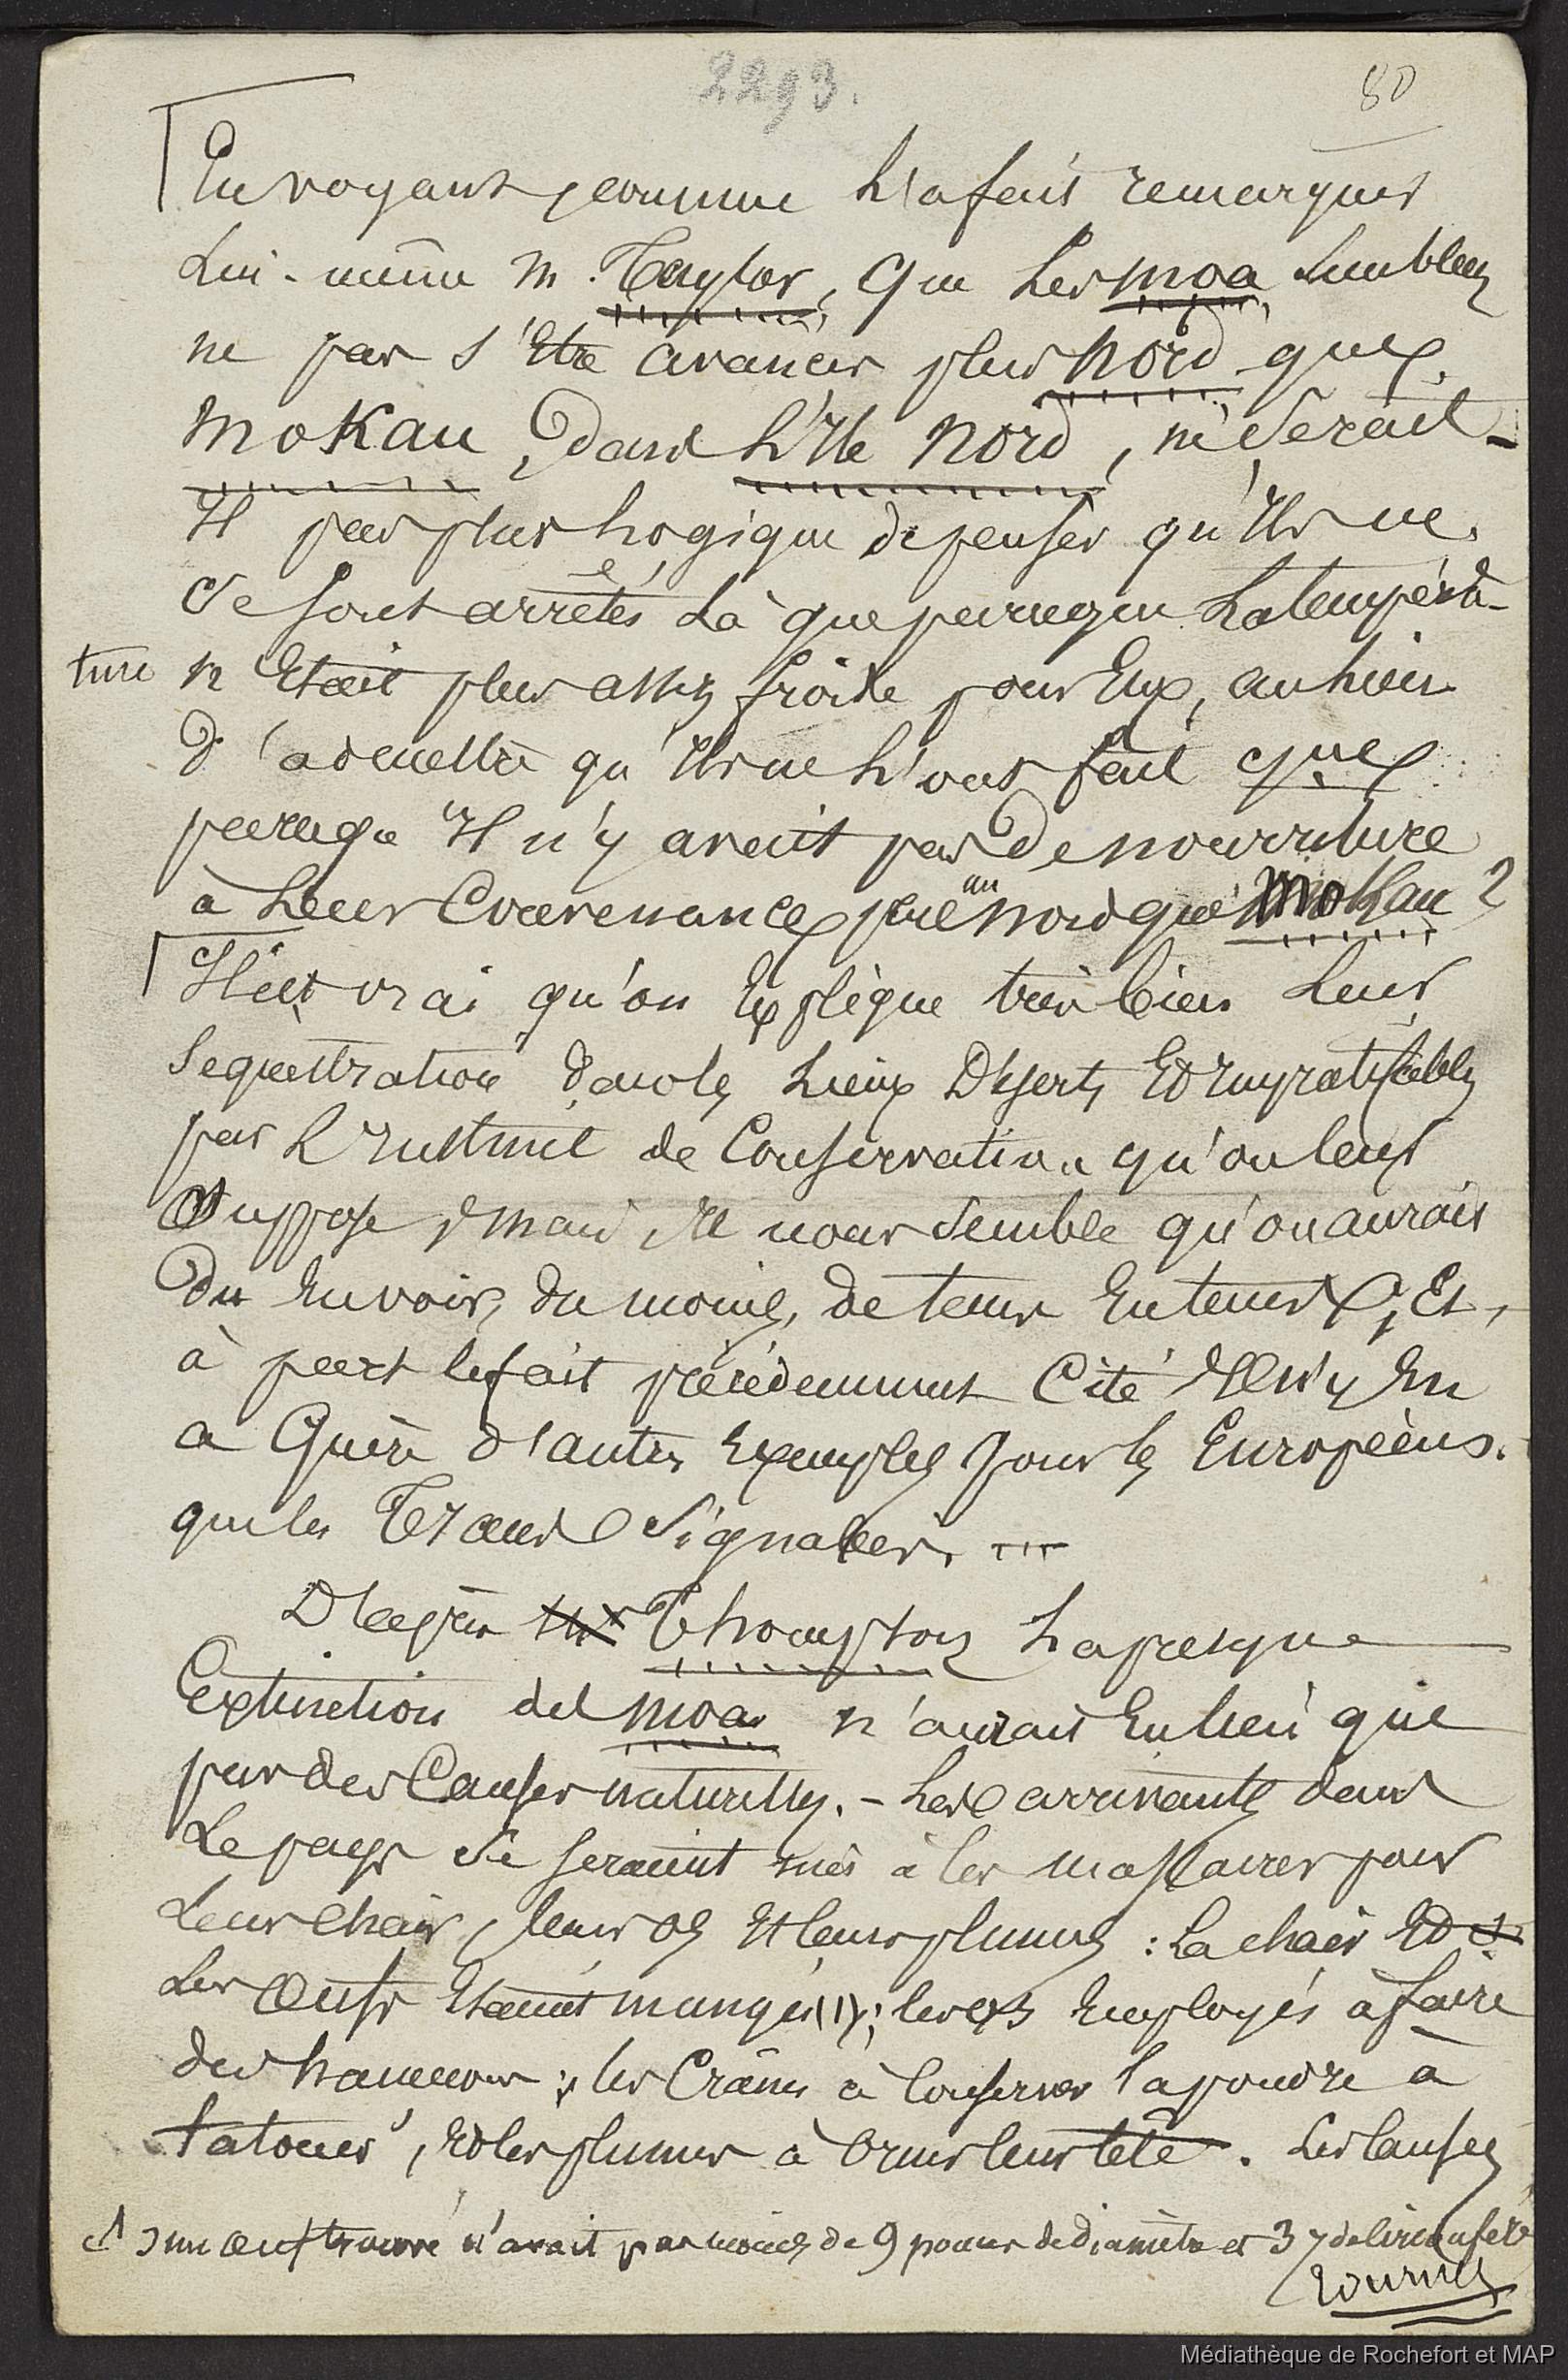 2293.
80
En voyant, comme l'a fait remarquer
Lui-même M. Taylor, que les moa semblent
ne pas s'être avancés plus nord que
Mokau, dans l'Ile Nord, ne serait-
Il pas plus logique de penser qu'Ils ne
se sont arrêtés là que parceque la tempéra-
ture n'était plus assez froide pour Eux, au lieu
d'admettre qu'Ils ne l'ont fait que
parceque Il n'y avait pas de nourriture
à leur Convenance, plus au nord que Mokau ?
Il est vrai qu'on Explique très bien leur
Sequestration dans les lieux Déserts Et Impratiscables
par l'Instinct de Conservation qu'on leur
Suppose, mais, Il nous semble qu'on aurait
Du En voir, du moins, de tems En tems, Et,
à part le fait précédemment Cité Il n'y En
a Guère d'autres Exemples pour les Européens
que les Traces Signalées. ...
D'après Mr Thompson La presque
Extinction des moa n'aurait Eu lieu que
par des Causes naturelles. - Les arrivants dans
Le pays se seraient mis à les massacrer pour
Leur Chair, leurs os Et leurs plumes : La chair Et
Les Œufs Etaient mangés (1); les os Employés à faire
des hameçons ; les Crânes à Conserver la poudre à
tatouer, Et les plumes à Orner leur tête. Les Causes
(1) un œuf trouvé n'avait pas moins de 9 pouces de diamètre et 37 de Circonfére
tournez
Médiathèque de Rochefort et MAP